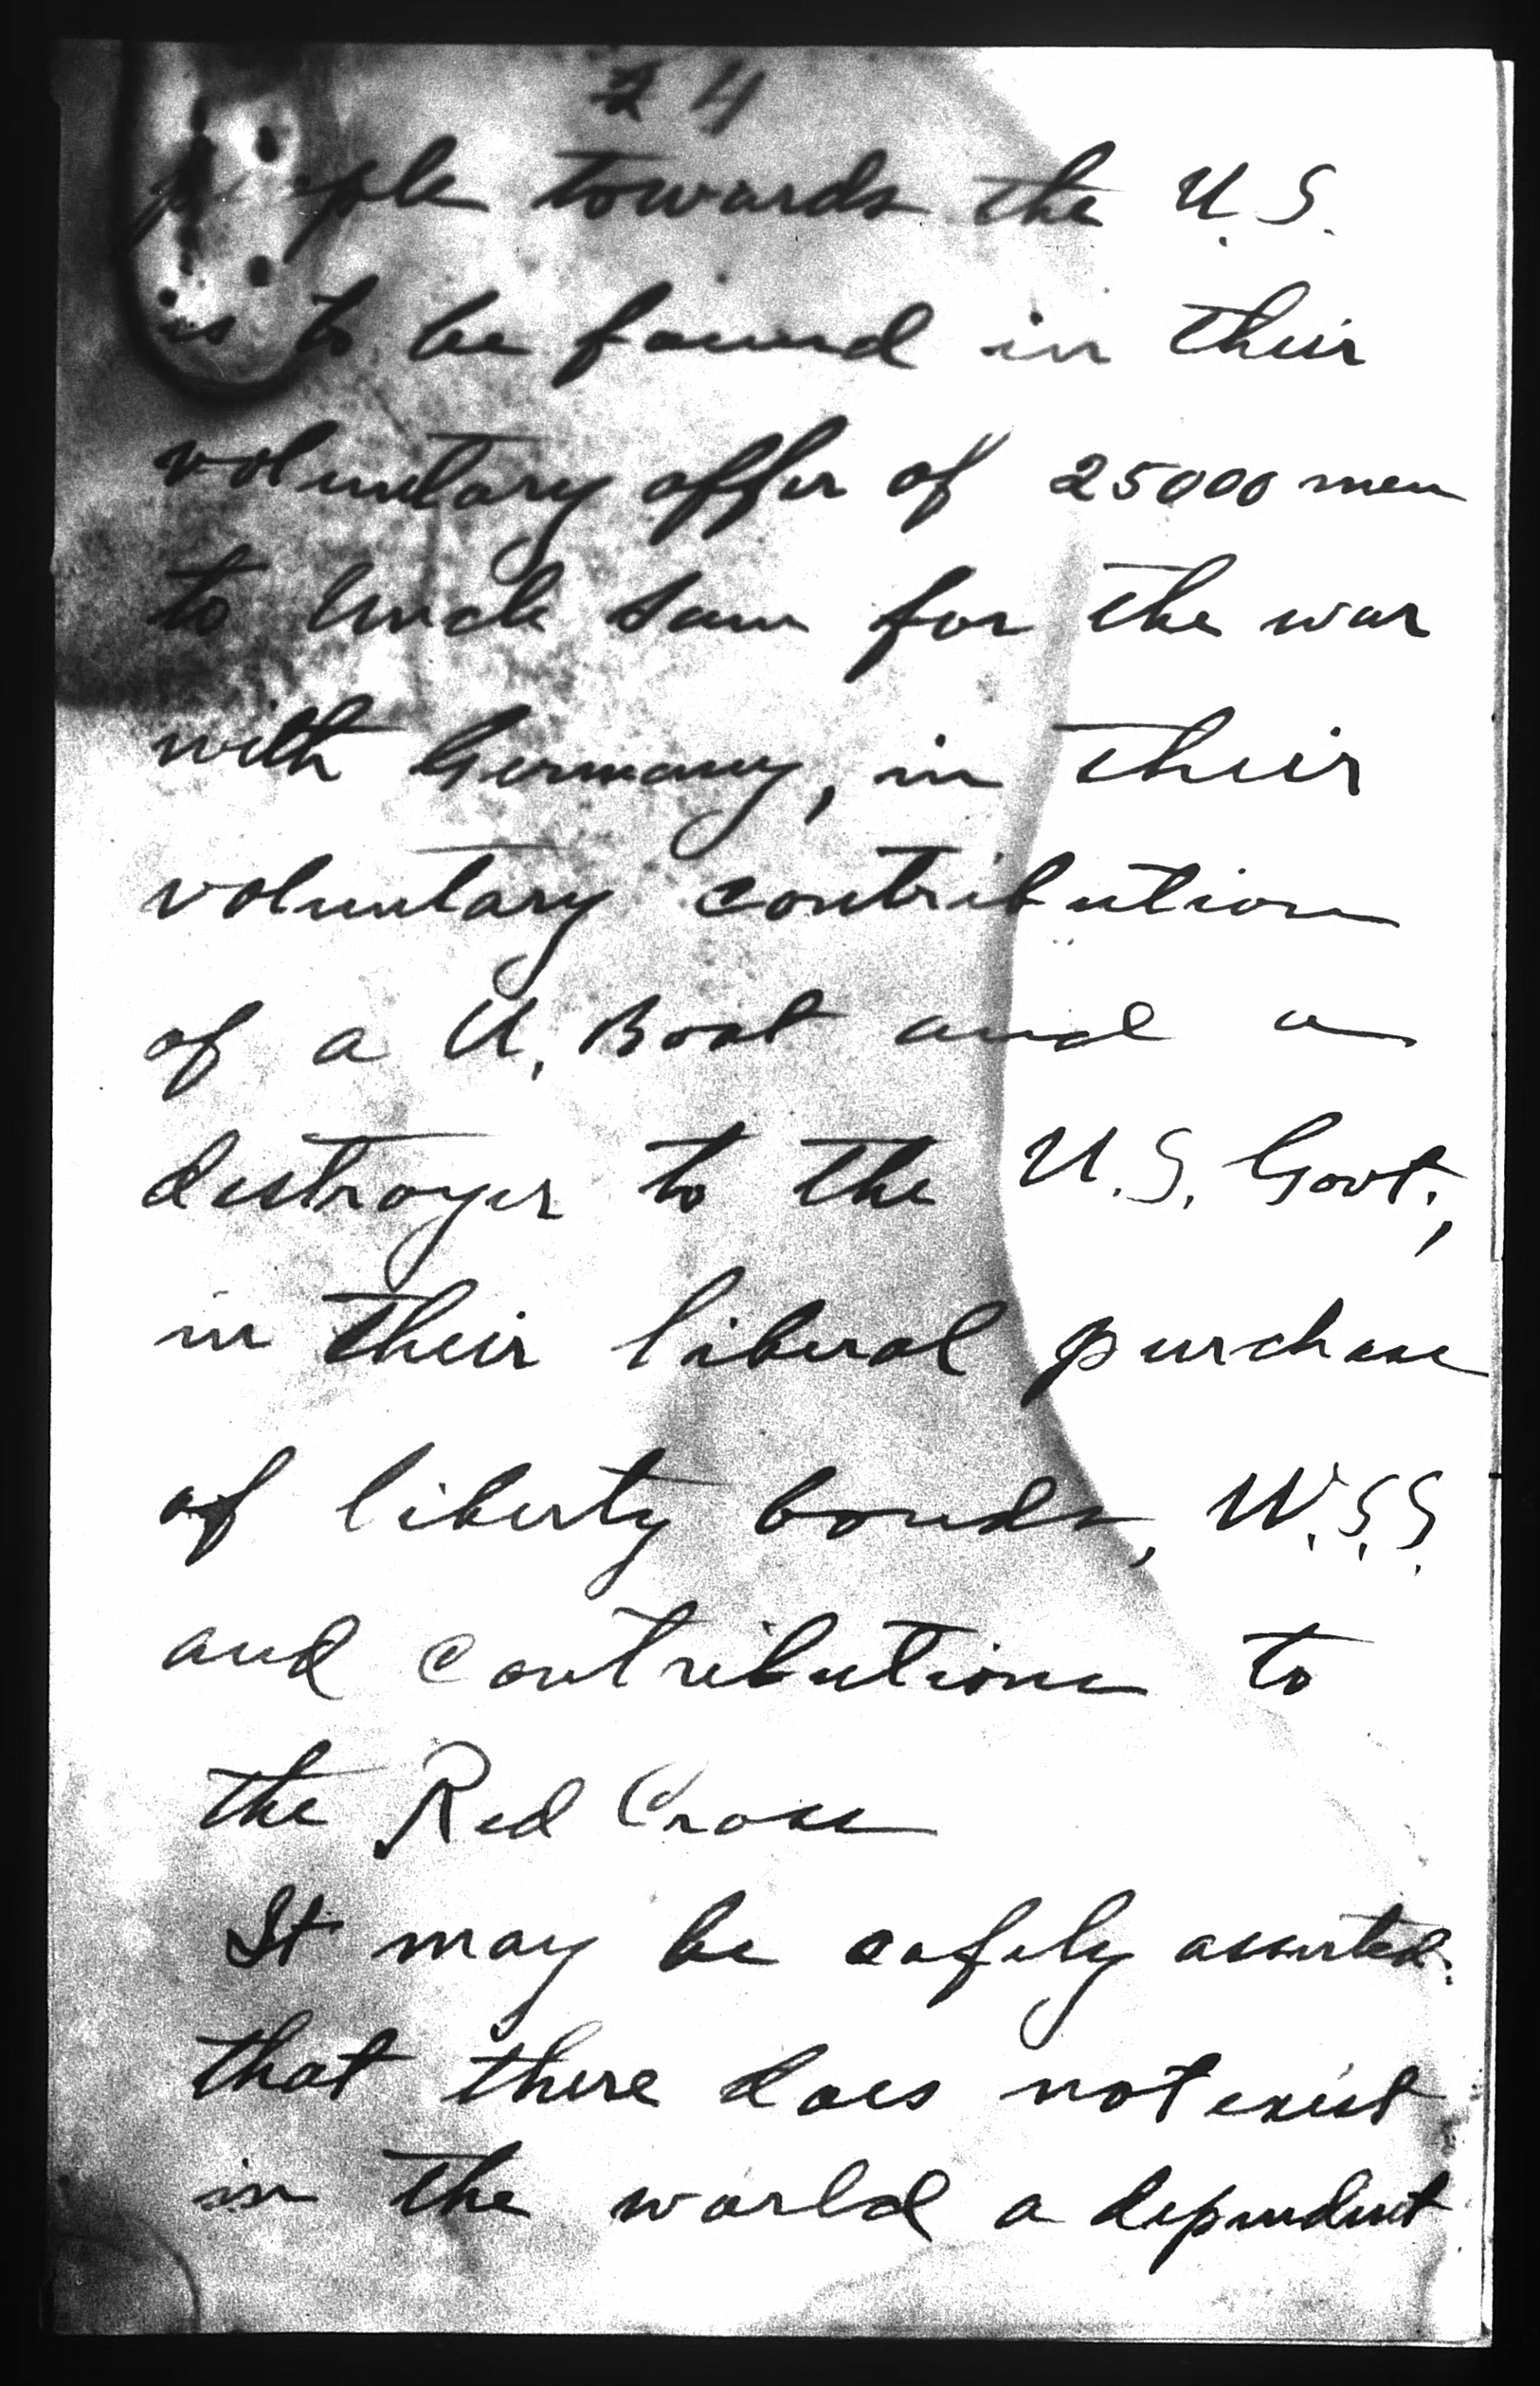 24
people towards the U.S.
is to be found in their
voluntary offer of 25000 men
to Uncle Sam for the war
with Germany, in their
voluntary contribution
of a U. Boat and a
destroyer to the U.S. Govt.,
in their liberal purchase
of liberty bonds, W.S.S.
and contributions to
the Red Cross
It may be safely asserted.
that there does not exist
in the world a dependent